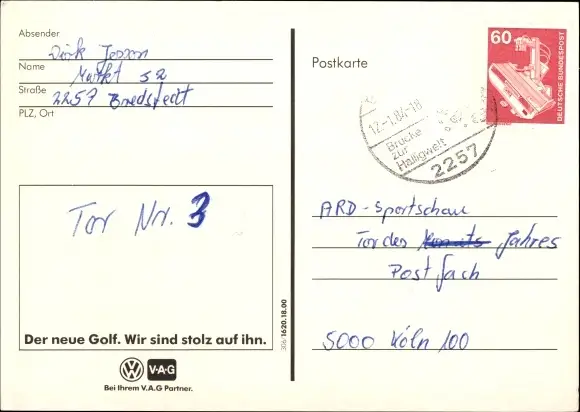 Absender
Dirk
Name
Markt 52
Straße
2257 Bredstedt
PLZ, Ort
Tor Nr. 3
Der neue Golf. Wir sind stolz auf ihn.
V·A·G
Bei Ihrem V.A.G Partner.
306/1620.18.00
Postkarte
60
DEUTSCHE BUNDESPOST
12.-1.84-18
Brücke
zur
Halligwelt
2257
ARD-Sportschau
Tor des Jahres
Postfach
5000 Köln 100